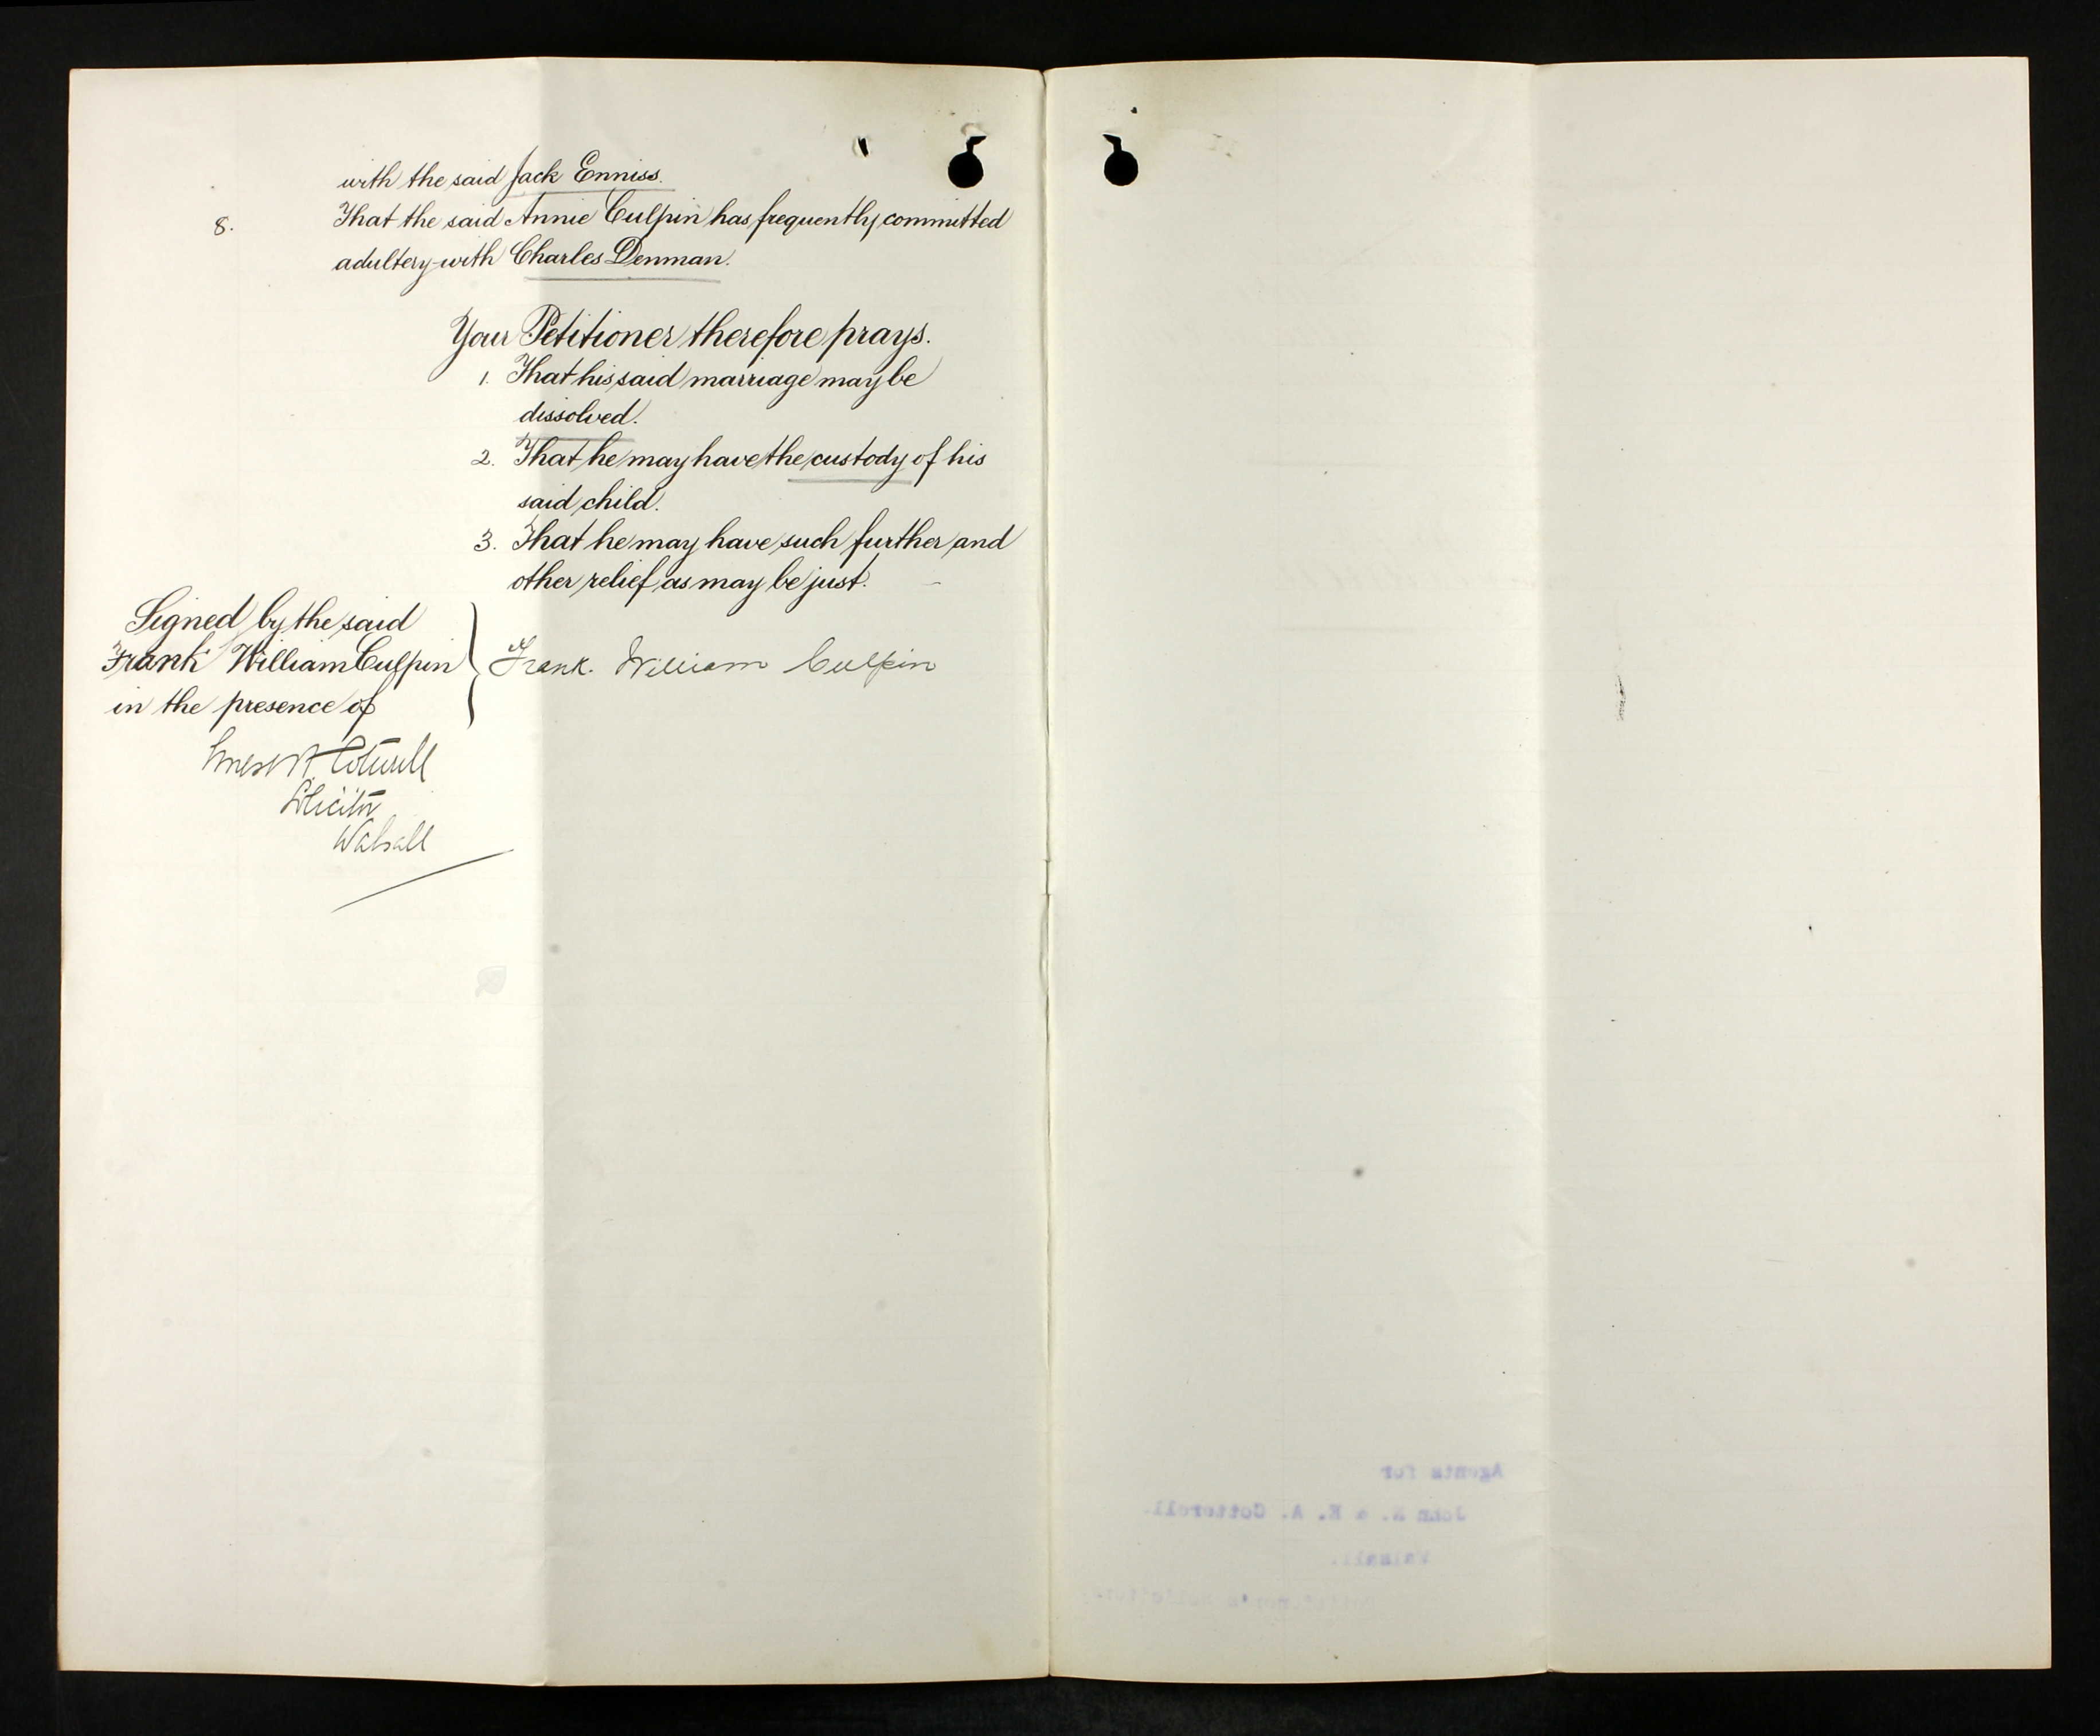 with the said Jack Enniss.
8. That the said Annie Culpin has frequently committed
adultery with Charles Denman.
Your Petitioner therefore prays.
1. That his said marriage may be
dissolved.
2. That he may have the custody of his
said child.
3. That he may have such further and
other relief as may be just.
Signed by the said
Frank William Culpin
in the presence of
Frank. William Culpin
Ernest A. Cotterell
Solicitor
Walsall
Agents for
John N. & E. A. Cotterell.
Walsall.
Petitioner's Solicitor.